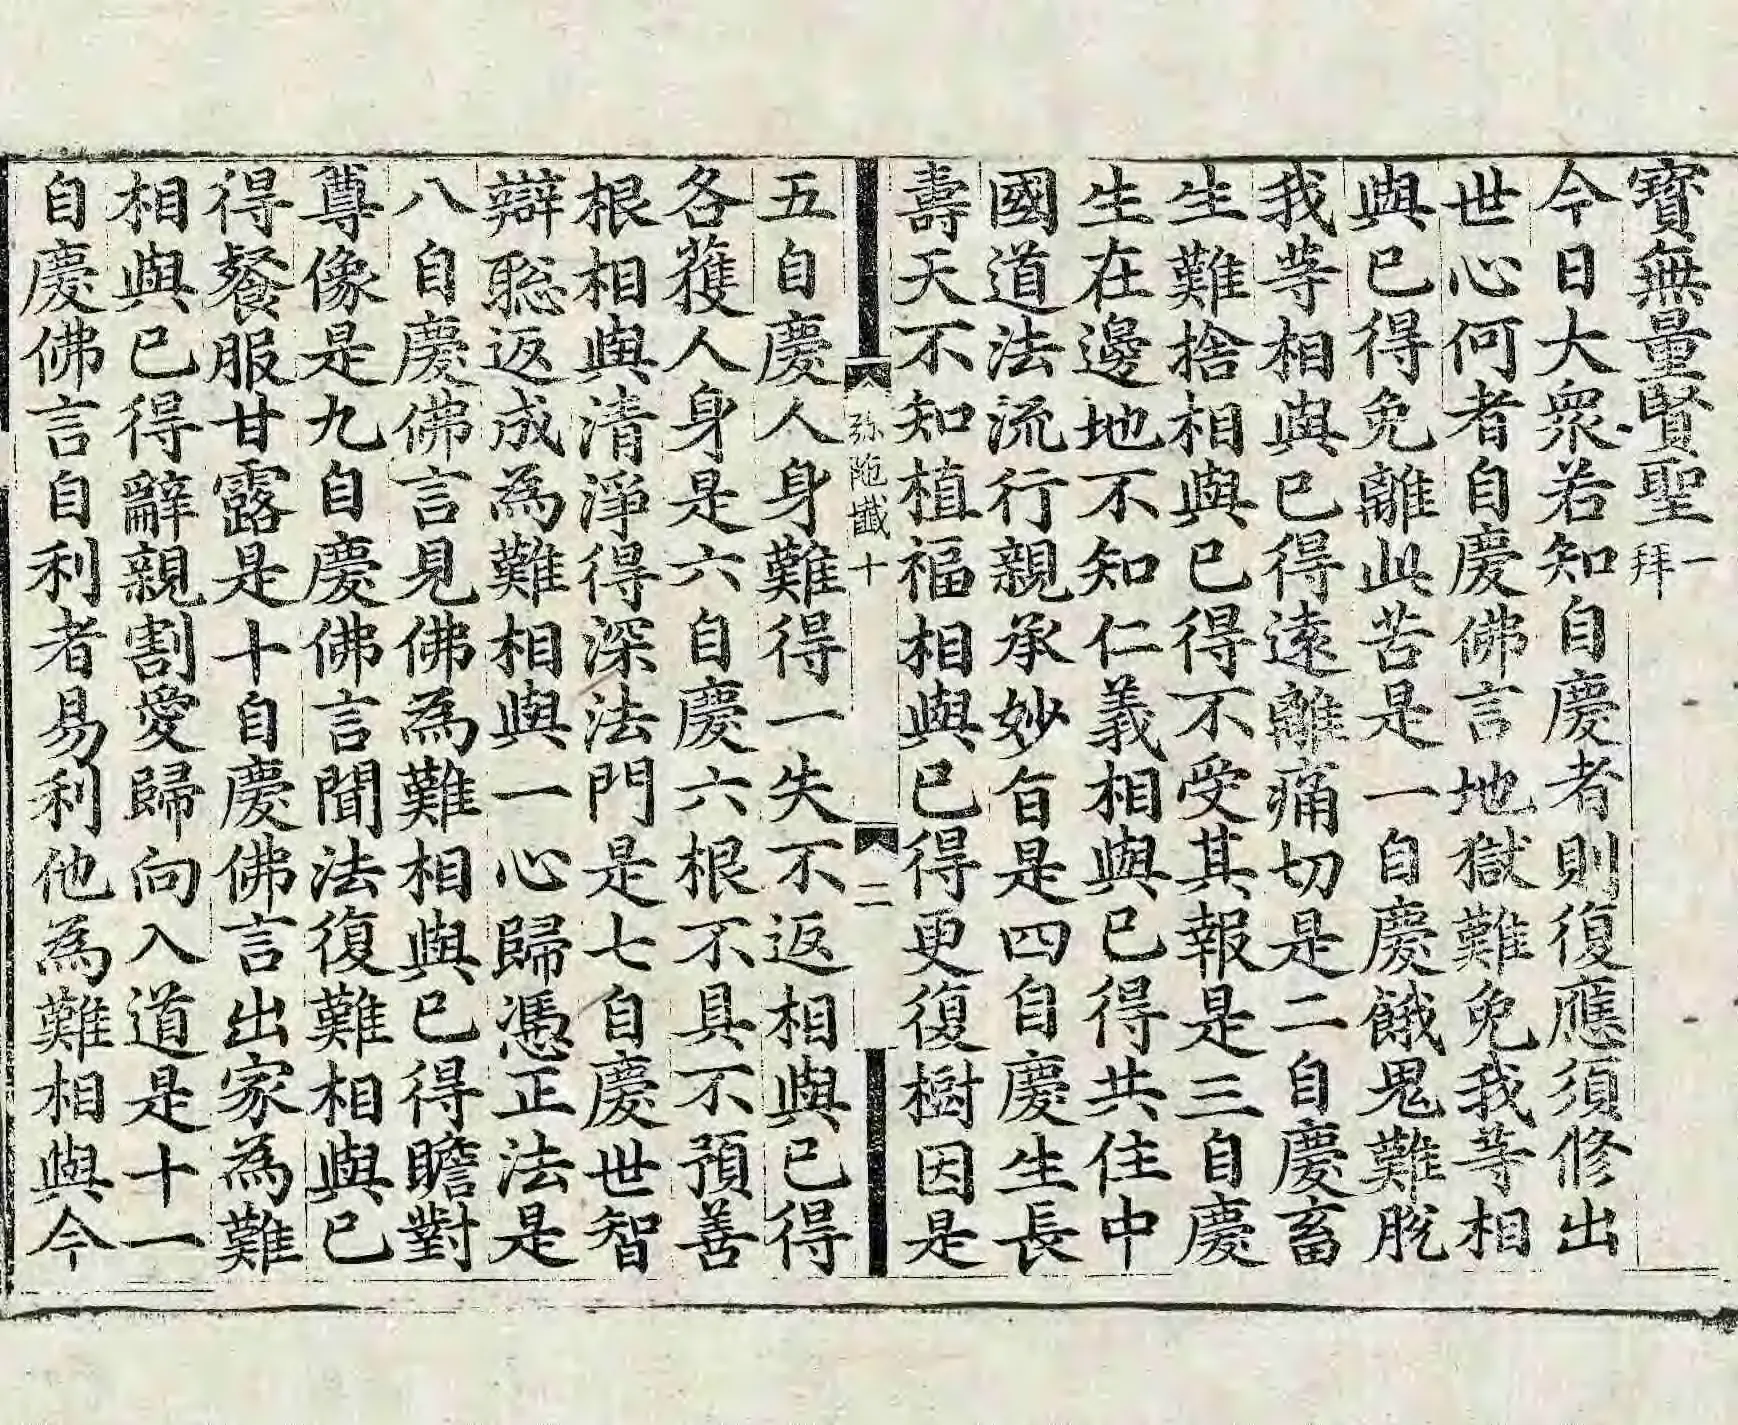 寳無量賢聖一拜
今日大衆若知自慶者則復應須修出
世心何者自慶佛言地獄難免我等相
與已得免離此苦是一自慶餓鬼難脫
我等相與已得遠離痛切是二自慶畜
生難捨相與已得不受其報是三自慶
生在邊地不知仁義相與已得共住中
國道法流行親承妙旨是四自慶生長
壽天不知植福相與已得更復樹因是
弥陁懺十
二
五自慶人身難得一失不返相與已得
各獲人身是六自慶六根不具不預善
根相與清淨得深法門是七自慶世智
辯聡返成為難相與一心歸憑正法是
八自慶佛言見佛為難相與已得瞻對
尊像是九自慶佛言聞法復難相與已
得餐服甘露是十自慶佛言出家為難
相與已得辭親割愛歸向入道是十一
自慶佛言自利者易利他為難相與今